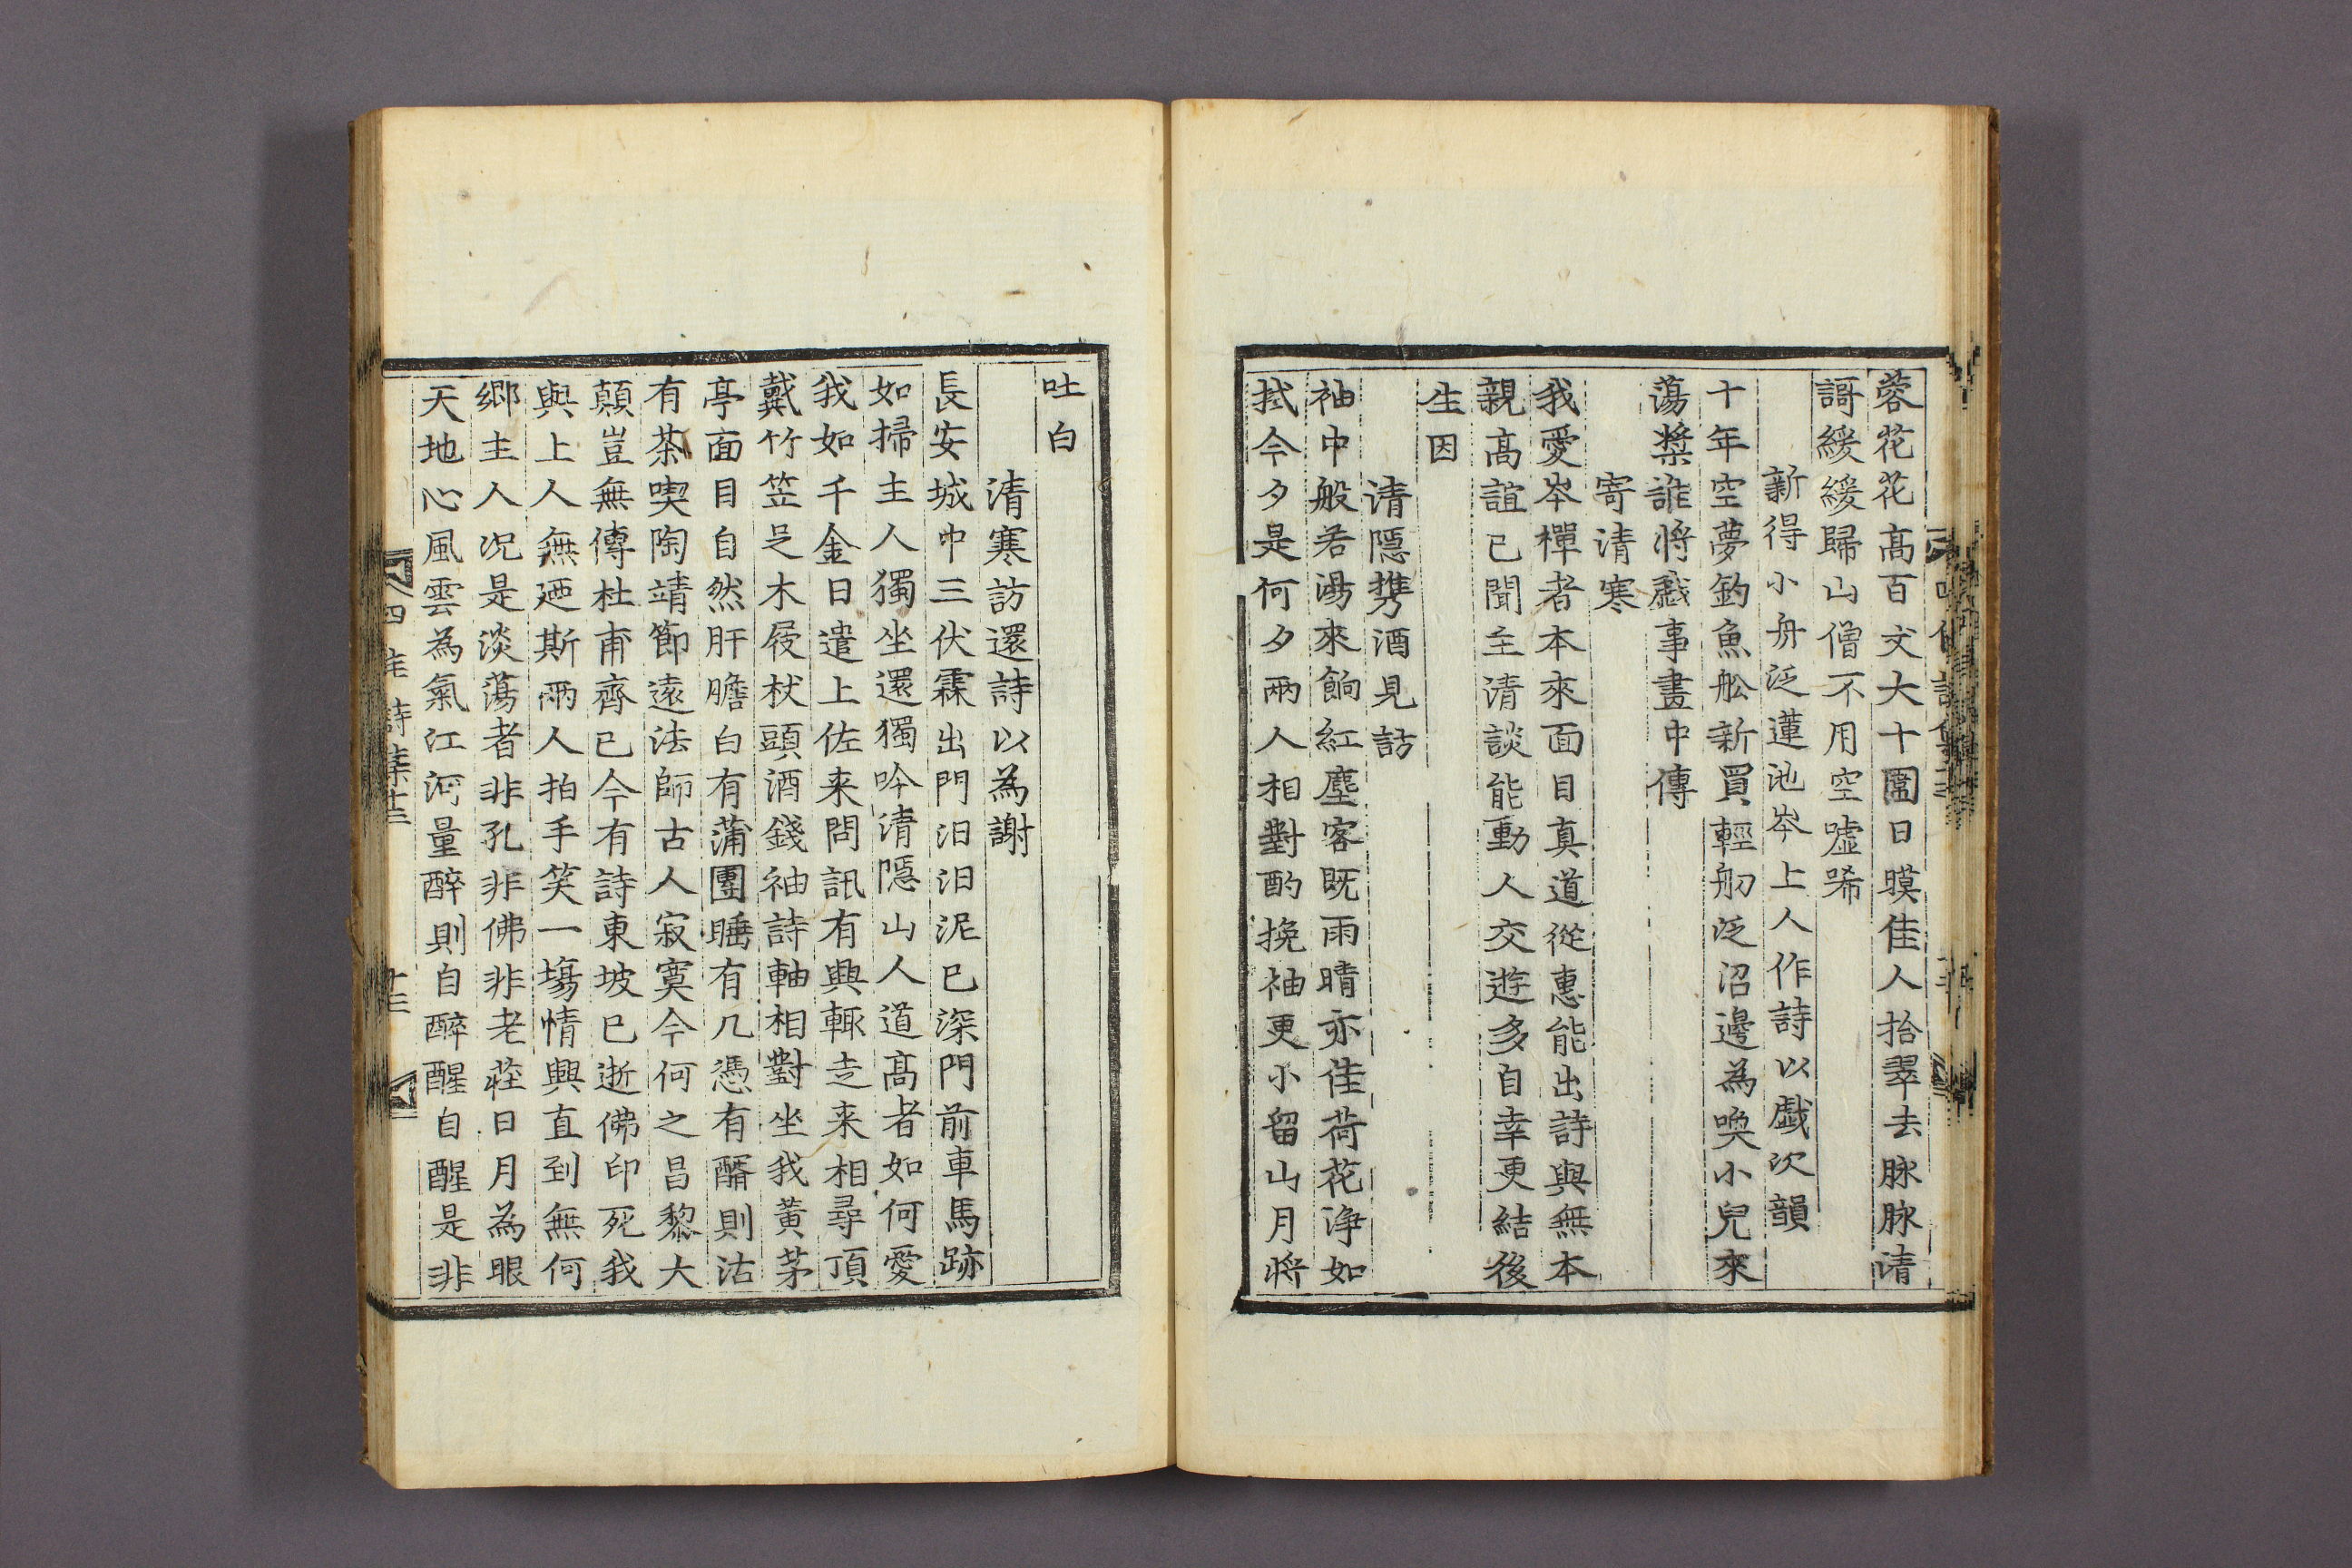 蓉花花高百丈大十圍日暮佳人拾翠去脉脉清
謌緩緩歸山僧不用空噓唏
新得小舟泛蓮池岑上人作詩以戯次韻
十年空夢釣魚舩新買輕舠泛沼邊為喚小兒來
蕩槳誰將戯事畫中傳
寄清寒
我愛岑禪者本來面目真道從惠能出詩與無本
親高誼已聞至清談能動人交遊多自幸更結後
生因
清隱携酒見訪
袖中般若湯來餉紅塵客既雨晴亦佳荷花淨如
拭今夕是何夕兩人相對酌挽袖更小留山月將
吐白
清寒訪還詩以為謝
長安城中三伏霖出門汨汨泥已深門前車馬跡
如掃主人獨坐還獨吟清隱山人道高者如何愛
我如千金日遣上佐来問訊有興輒走来相尋頂
戴竹笠足木屐杖頭酒錢袖詩軸相對坐我黃茅
亭面目自然肝膽白有蒲團睡有几憑有醑則沽
有茶喫陶靖節遠法師古人寂寞今何之昌黎大
顛豈無傳杜甫齊已今有詩東坡已逝佛印死我
與上人無廼斯兩人拍手笑一場情興直到無何
郷主人况是淡蕩者非孔非佛非老莊日月為眼
天地心風雲為氣江河量醉則自醉醒自醒是非